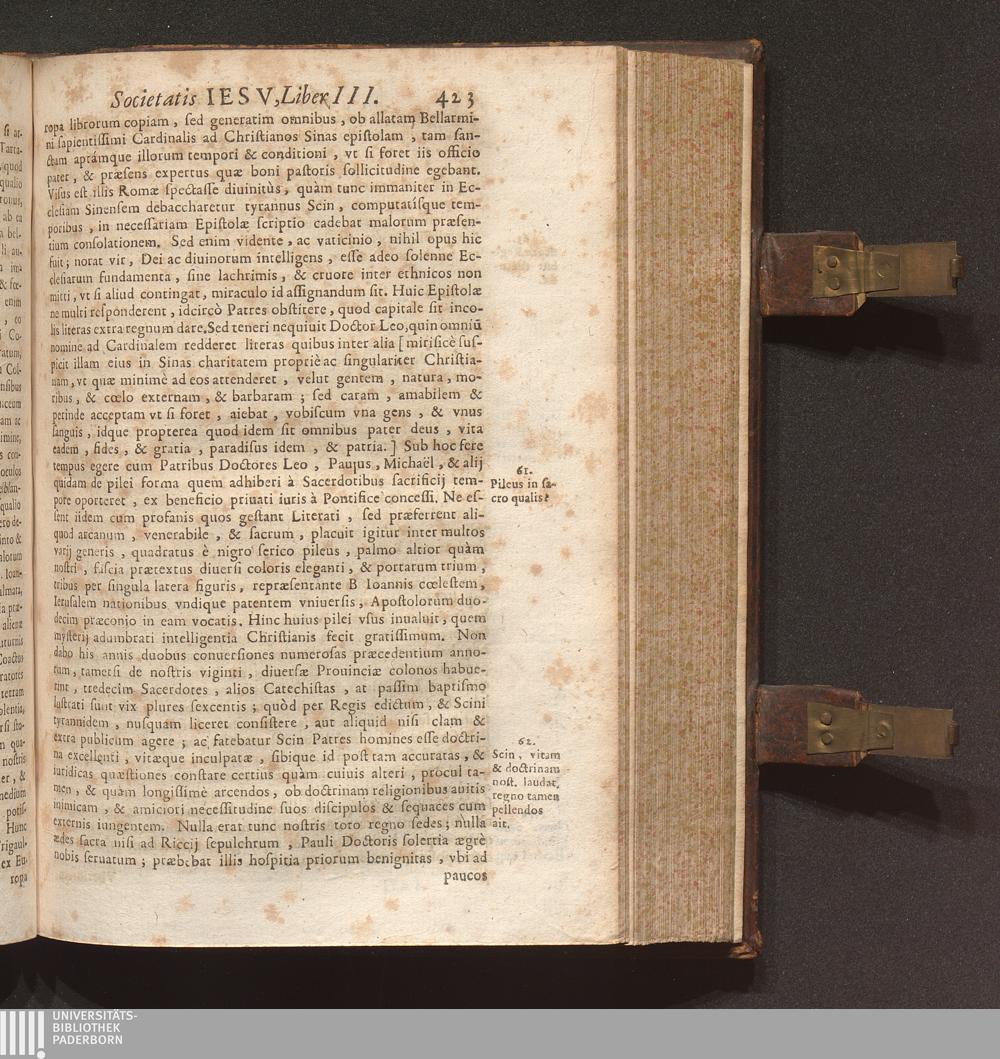 Societatis IESV, Liber III. 423
ropa librorum copiam, sed generatim omnibus, ob allatam Bellarmi-
ni sapientissimi Cardinalis ad Christianos Sinas epistolam, tam san-
ctam aptámque illorum tempori & conditioni, vt si foret iis officio
pater, & præsens expertus quæ boni pastoris sollicitudine egebant.
Visus est illis Romæ spectasse diuinitùs, quàm tunc immaniter in Ec-
clesiam Sinensem debaccharetur tyrannus Scin, computatísque tem-
poribus, in necessariam Epistolæ scriptio cadebat malorum præsen-
tium consolationem. Sed enim vidente, ac vaticinio, nihil opus hic
fuit; norat vir, Dei ac diuinorum intelligens, esse adeo solenne Ec-
clesiarum fundamenta, sine lachrimis, & cruore inter ethnicos non
mitti, vt si aliud contingat, miraculo id assignandum sit. Huic Epistolæ
ne multi responderent, idcircò Patres obstitere, quod capitale sit inco-
lis literas extra regnum dare. Sed teneri nequiuit Doctor Leo, quin omniū
nomine ad Cardinalem redderet literas quibus inter alia [mirificè sus-
picit illam eius in Sinas charitatem propriè ac singulariter Christia-
nam, vt quæ minimè ad eos attenderet, velut gentem, natura, mo-
ribus, & cœlo externam, & barbaram; sed caram, amabilem &
perinde acceptam vt si foret, aiebat, vobiscum vna gens, & vnus
sanguis, idque propterea quod idem sit omnibus pater deus, vita
eadem, fides, & gratia, paradisus idem, & patria.] Sub hoc fere
tempus egere cum Patribus Doctores Leo, Paulus, Michaël, & alij
quidam de pilei forma quem adhiberi à Sacerdotibus sacrificij tem-
pore oporteret, ex beneficio priuati iuris à Pontifice concessi. Ne es-
sent iidem cum profanis quos gestant Literati, sed præferrent ali-
quod arcanum, venerabile, & sacrum, placuit igitur inter multos
varij generis, quadratus è nigro serico pileus, palmo altior quàm
nostri, fascia prætextus diuersi coloris eleganti, & portarum trium,
tribus per singula latera figuris, repræsentante B Ioannis cœlestem,
Ierusalem nationibus vndique patentem vniuersis, Apostolorum duo-
decim præconio in eam vocatis. Hinc huius pilei vsus inualuit, quem
mysterij adumbrati intelligentia Christianis fecit gratissimum. Non
dabo his annis duobus conuersiones numerosas præcedentium anno-
rum, tametsi de nostris viginti, diuersæ Prouinciæ colonos habue-
rint, tredecim Sacerdotes, alios Catechistas, at passim baptismo
lustrati sunt vix plures sexcentis; quòd per Regis edictum, & Scini
tyrannidem, nusquam liceret consistere, aut aliquid nisi clam &
extra publicum agere; ac fatebatur Scin Patres homines esse doctri-
na excellenti, vitæque inculpatæ, sibique id post tam accuratas, &
iuridicas quæstiones constare certius quàm cuiuis alteri, procul ta-
men, & quàm longissimè arcendos, ob doctrinam religionibus auitis
inimicam, & amiciori necessitudine suos discipulos & sequaces cum
externis iungentem. Nulla erat tunc nostris toto regno sedes; nulla
ædes sacra nisi ad Riccij sepulchrum, Pauli Doctoris solertia ægrè
nobis seruatum; præbebat illis hospitia priorum benignitas, vbi ad
paucos
61.
Pileus in sa-
cro qualis?
62.
Scin, vitam
& doctrinam
nost. laudat,
regno tamen
pellendos
ait.
UNIVERSITÄTS-
BIBLIOTHEK
PADERBORN